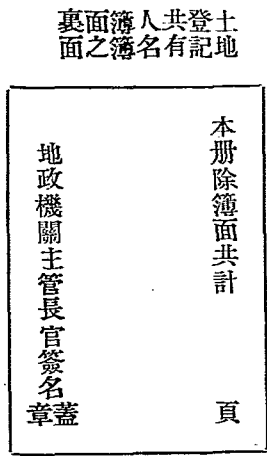 土地登記共有人名簿簿面之裏面
本册除簿面共計　頁
地政機關主管長官簽名蓋章